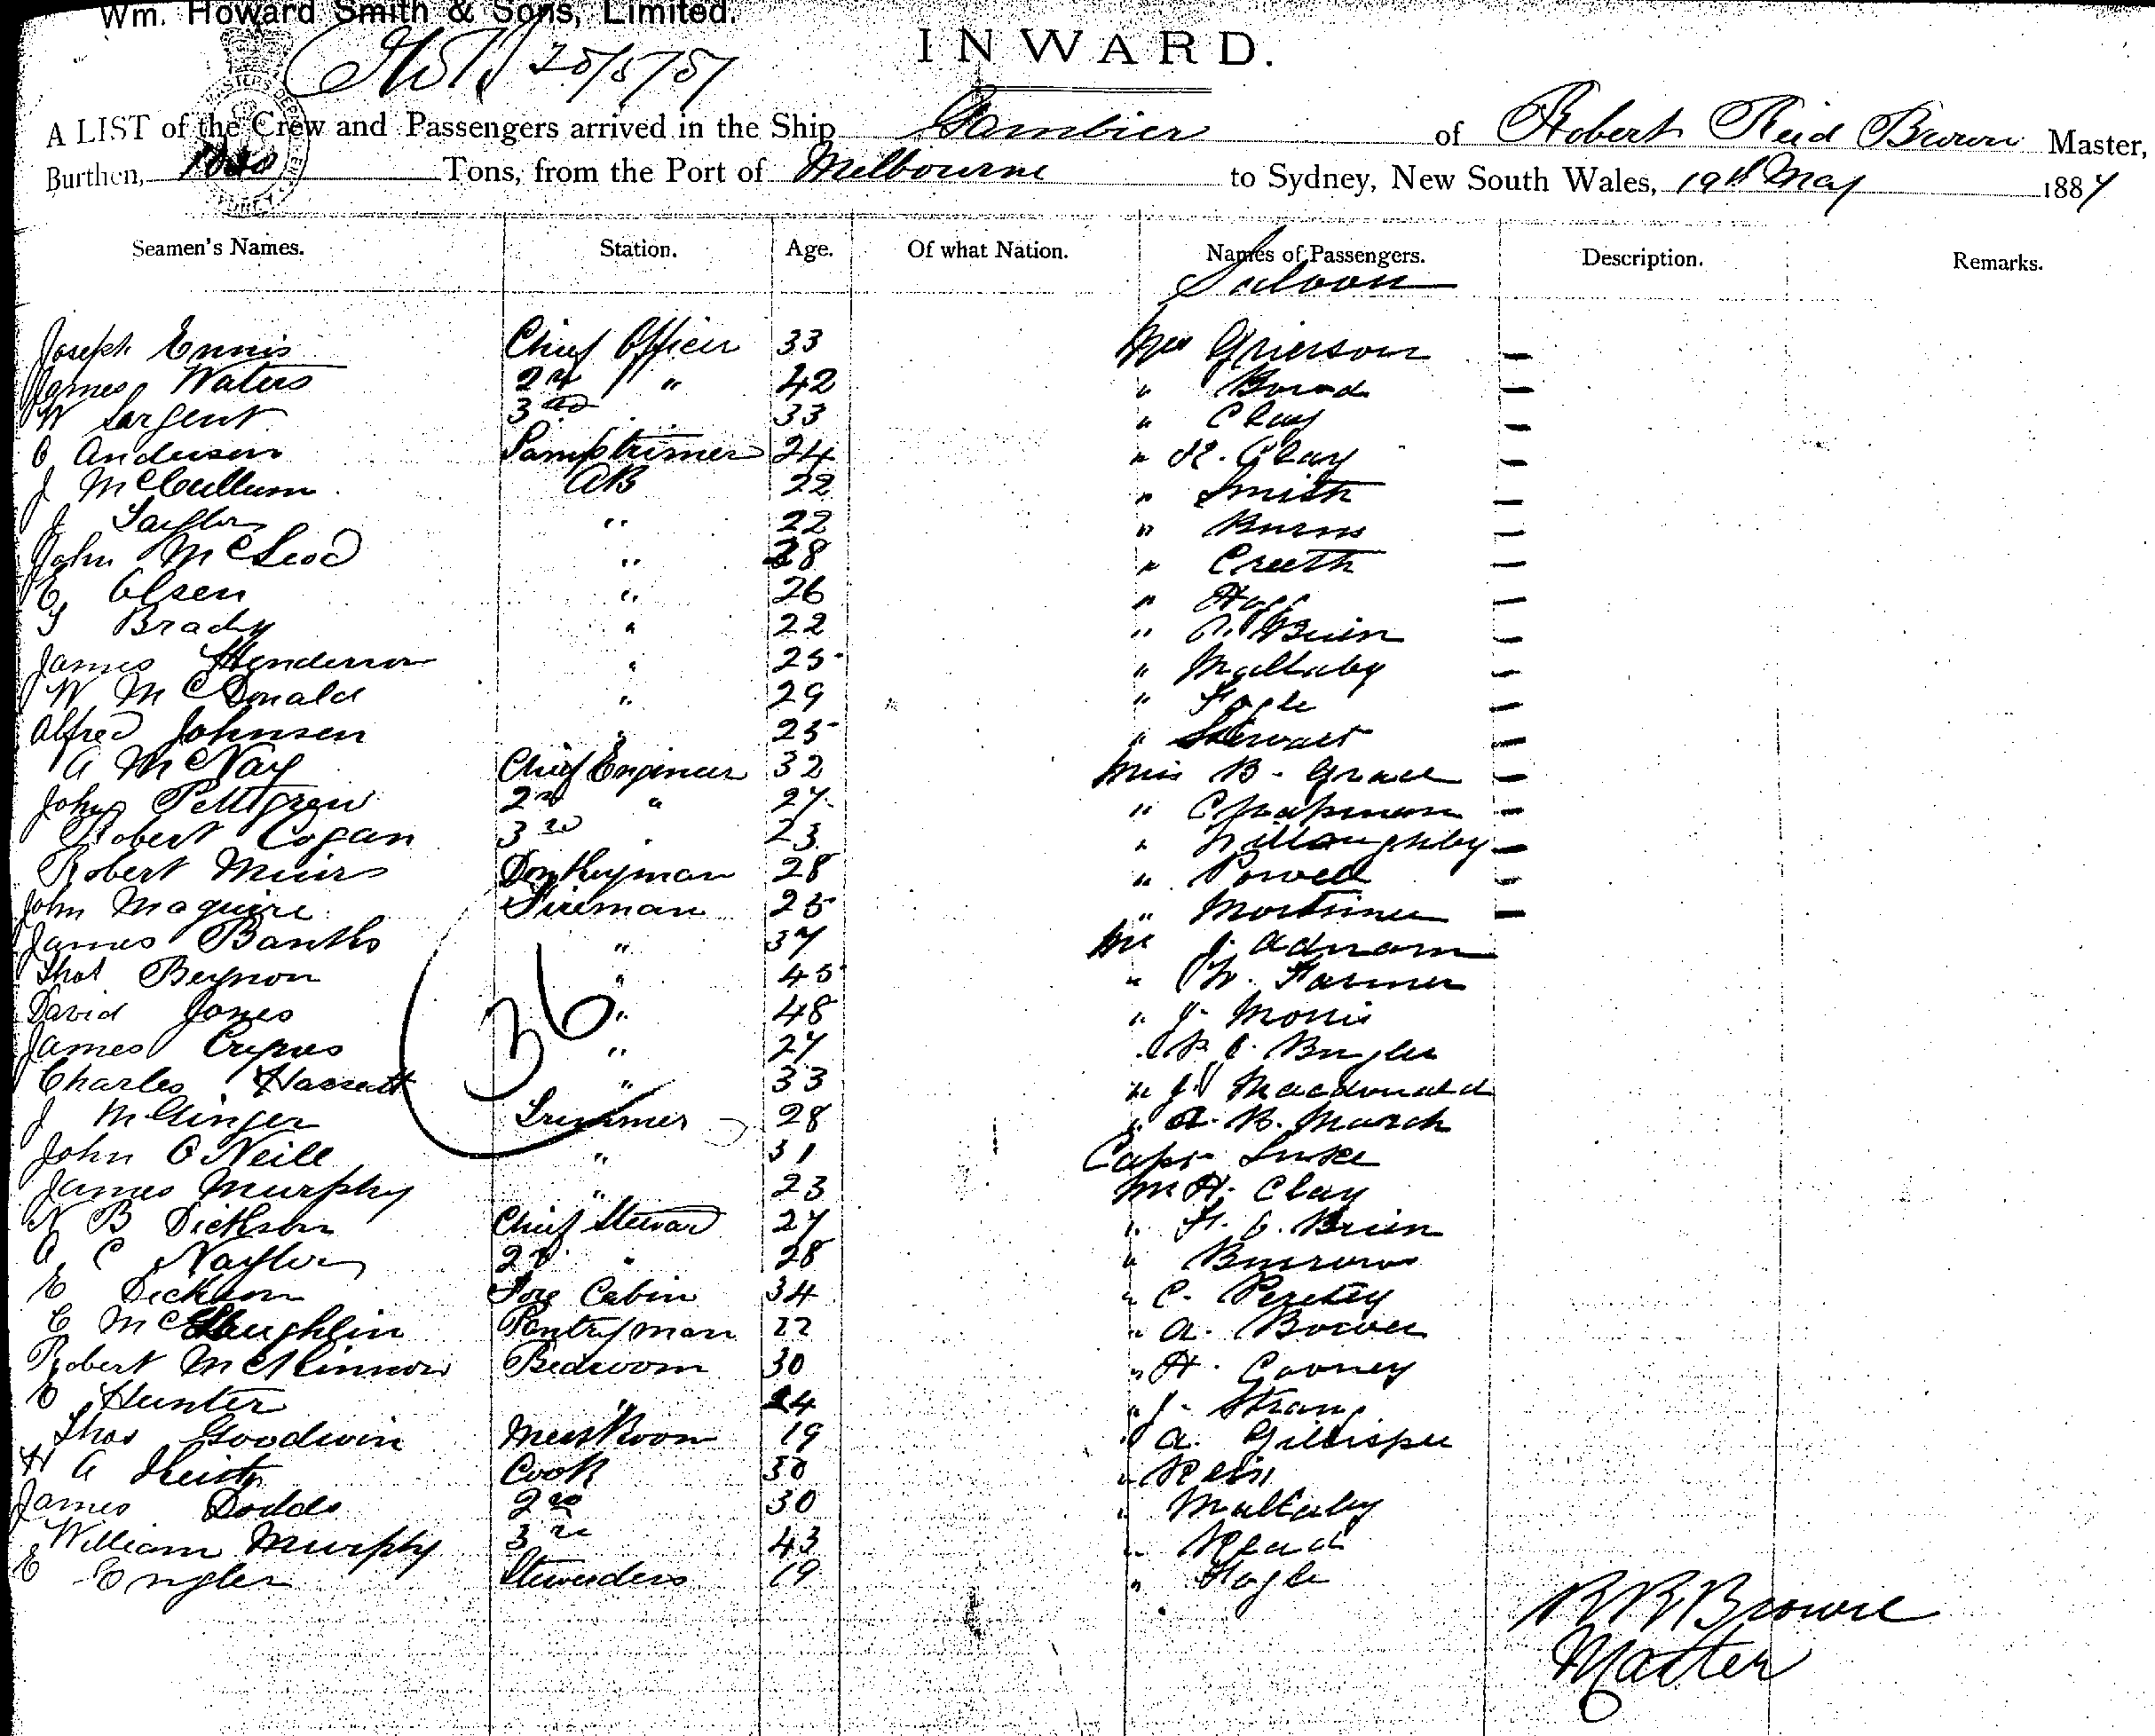 Wm. Howard Smith & Sons, Limited.
INWARD.
A LIST of the Crew and Passengers arrived in the Ship Gambier of Robert Reid Brown Master,
Burthen, Tons, from the Port of Melbourne to Sydney, New South Wales, 19th May 1887
Seamen's Names. Station. Age. Of what Nation. Names of Passengers. Description. Remarks.
Saloon
Joseph Ennis Chief Officer 33 Mrs Grierson —
James Waters 2nd " 42 " —
W Sargent 3rd 33 " Clay —
C Anderson Lamptrimer 24 " Clay —
J McCullum AB 22 " Smith —
J Taylor " 22 " Burns —
John McLeod " 28 " Creeth —
Olsen " 26 " —
Brady " 22 " —
James Henderson " 25 " Maltaby —
W McDonald " 29 " Fogle —
Alfred Johnsen " 25 " Stewart —
A McNay Chief Engineer 32 Miss B. Grace —
John Pettigrew 2nd " 27 " Chapman —
Robert Cogan 3rd 23 " Willoughby —
Robert Muirs Donkeyman 28 " Powell —
John Maguire Fireman 25 " Mortimer —
James Banks " 37 Mr J. Adnam
Thos Beynon " 45 " W. Farmer
David Jones " 48 " J. Morris
James " 27
Charles Hassett " 33 " J Macdonald
36
J Trimmer 28 " A. B. March
John O'Neill " 31 Capt Luke
James Murphy " 23 Mr H. Clay
N B Dickson Chief Steward 27 " F. O. Brien
A C Naylor 2d " 28 " Burrows
E Dickson Fore Cabin 34 " C.
C McLaughlin Pantryman 22 " A.
Robert McKinnon Bedroom 30 " H. Cooney
E Hunter " 24 " J.
Thos Goodwin Messroom 19 " A. Gillispee
H A Cook 30
James Dodds 2nd 30 " Maltaby
William Murphy 3rd 43 " Read
E Engler Stewardess 19 " Fogle
R R Brown
Master